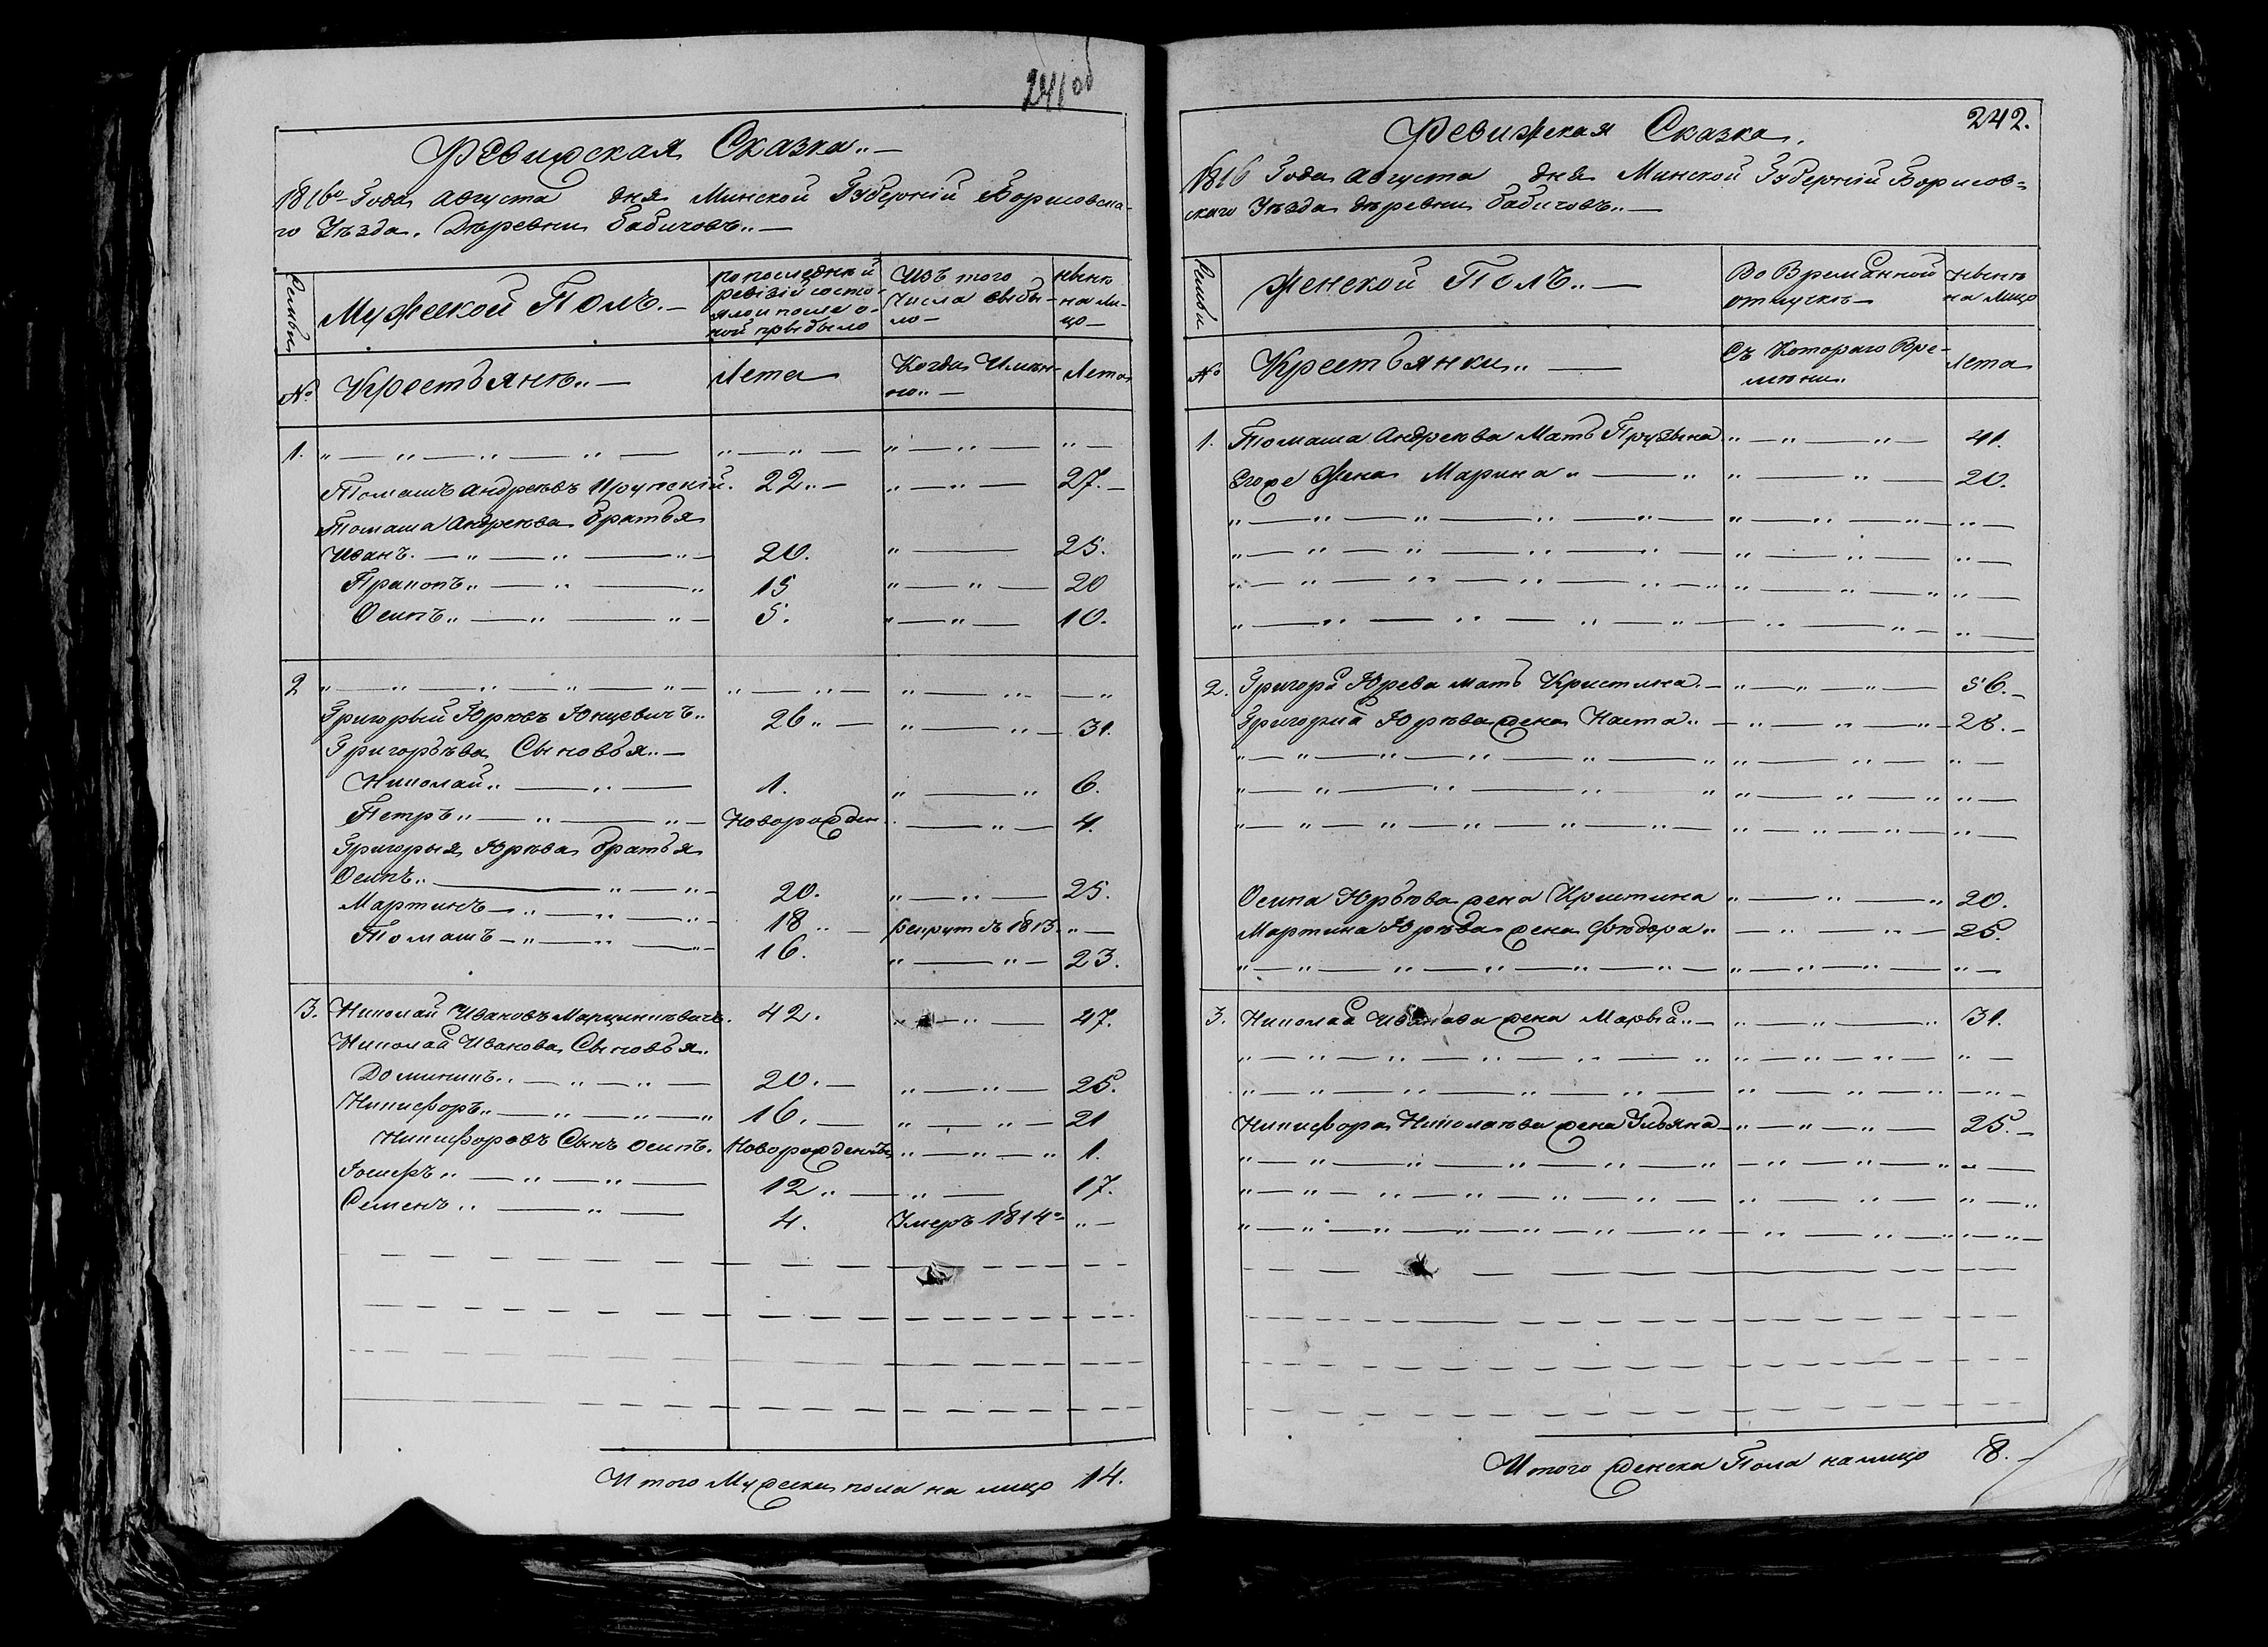 241 об
Ревижская Сказка
1816го Года Августа дня Минской Губерніи Борисовска-
го Уѣзда. Дѣревни Бабичовъ
Семьи
Мужеской Полъ.
по последней
ревізіи состо-
яло и после о-
ной прибыло
Изъ того
числа выбы-
ло
нынѣ
на ли-
цо
№
Крестьянѣ
Лета
Когда Имян-
но
Лета
1.
Томашъ Андреевъ 22 27.
Томаша Андреева братья
Иванъ. 20. 25.
Пракопъ 15 20
Осипъ 5. 10.
2
Григорый Юревъ Юнцевичъ 26 31.
Григорьева Сыновья
Николай 1. 6.
Петръ Новорожден 4.
Григорыя Юрева братья
Осипъ 20. 25.
Мартинъ 18 Рекрутъ 1813.
Томашъ 16. 23.
3. Николай Ивановъ Марцинкевичъ. 42. 47.
Николая Иванова Сыновья
Доминикъ 20. 25.
Никифоръ 16. 21
Никифоровъ Сынъ Осипъ. Новорожденны 1.
Іосифъ 12 17.
Семенъ 4. Умеръ 1814го
Итого Мужеска пола на лицо 14.
242.
Ревижская Сказка.
1816 Года Августа дня Минской Губерніи Борисов=
скаго Уѣзда дѣревни Бабичовъ
Семьи
Женской Полъ
Во Временной
отлучкѣ
нынѣ
на Лицо
№
Крестьянки
Съ Котораго Вре-
мени
Лета
1. Томаша Андреева Мать 41.
Егоже Жена Марина 20.
2. Григорія Юрева мать Кристина. 56.
Григорія Юрева жена Наста 28.
Осипа Юрьева жена Криштина 20.
Мартина Юрева жена Федора 25.
3. Николая Иванова жена Марья 31.
Никифора Николаева жена Ульяна 25.
Итого женска Пола на лицо 8.